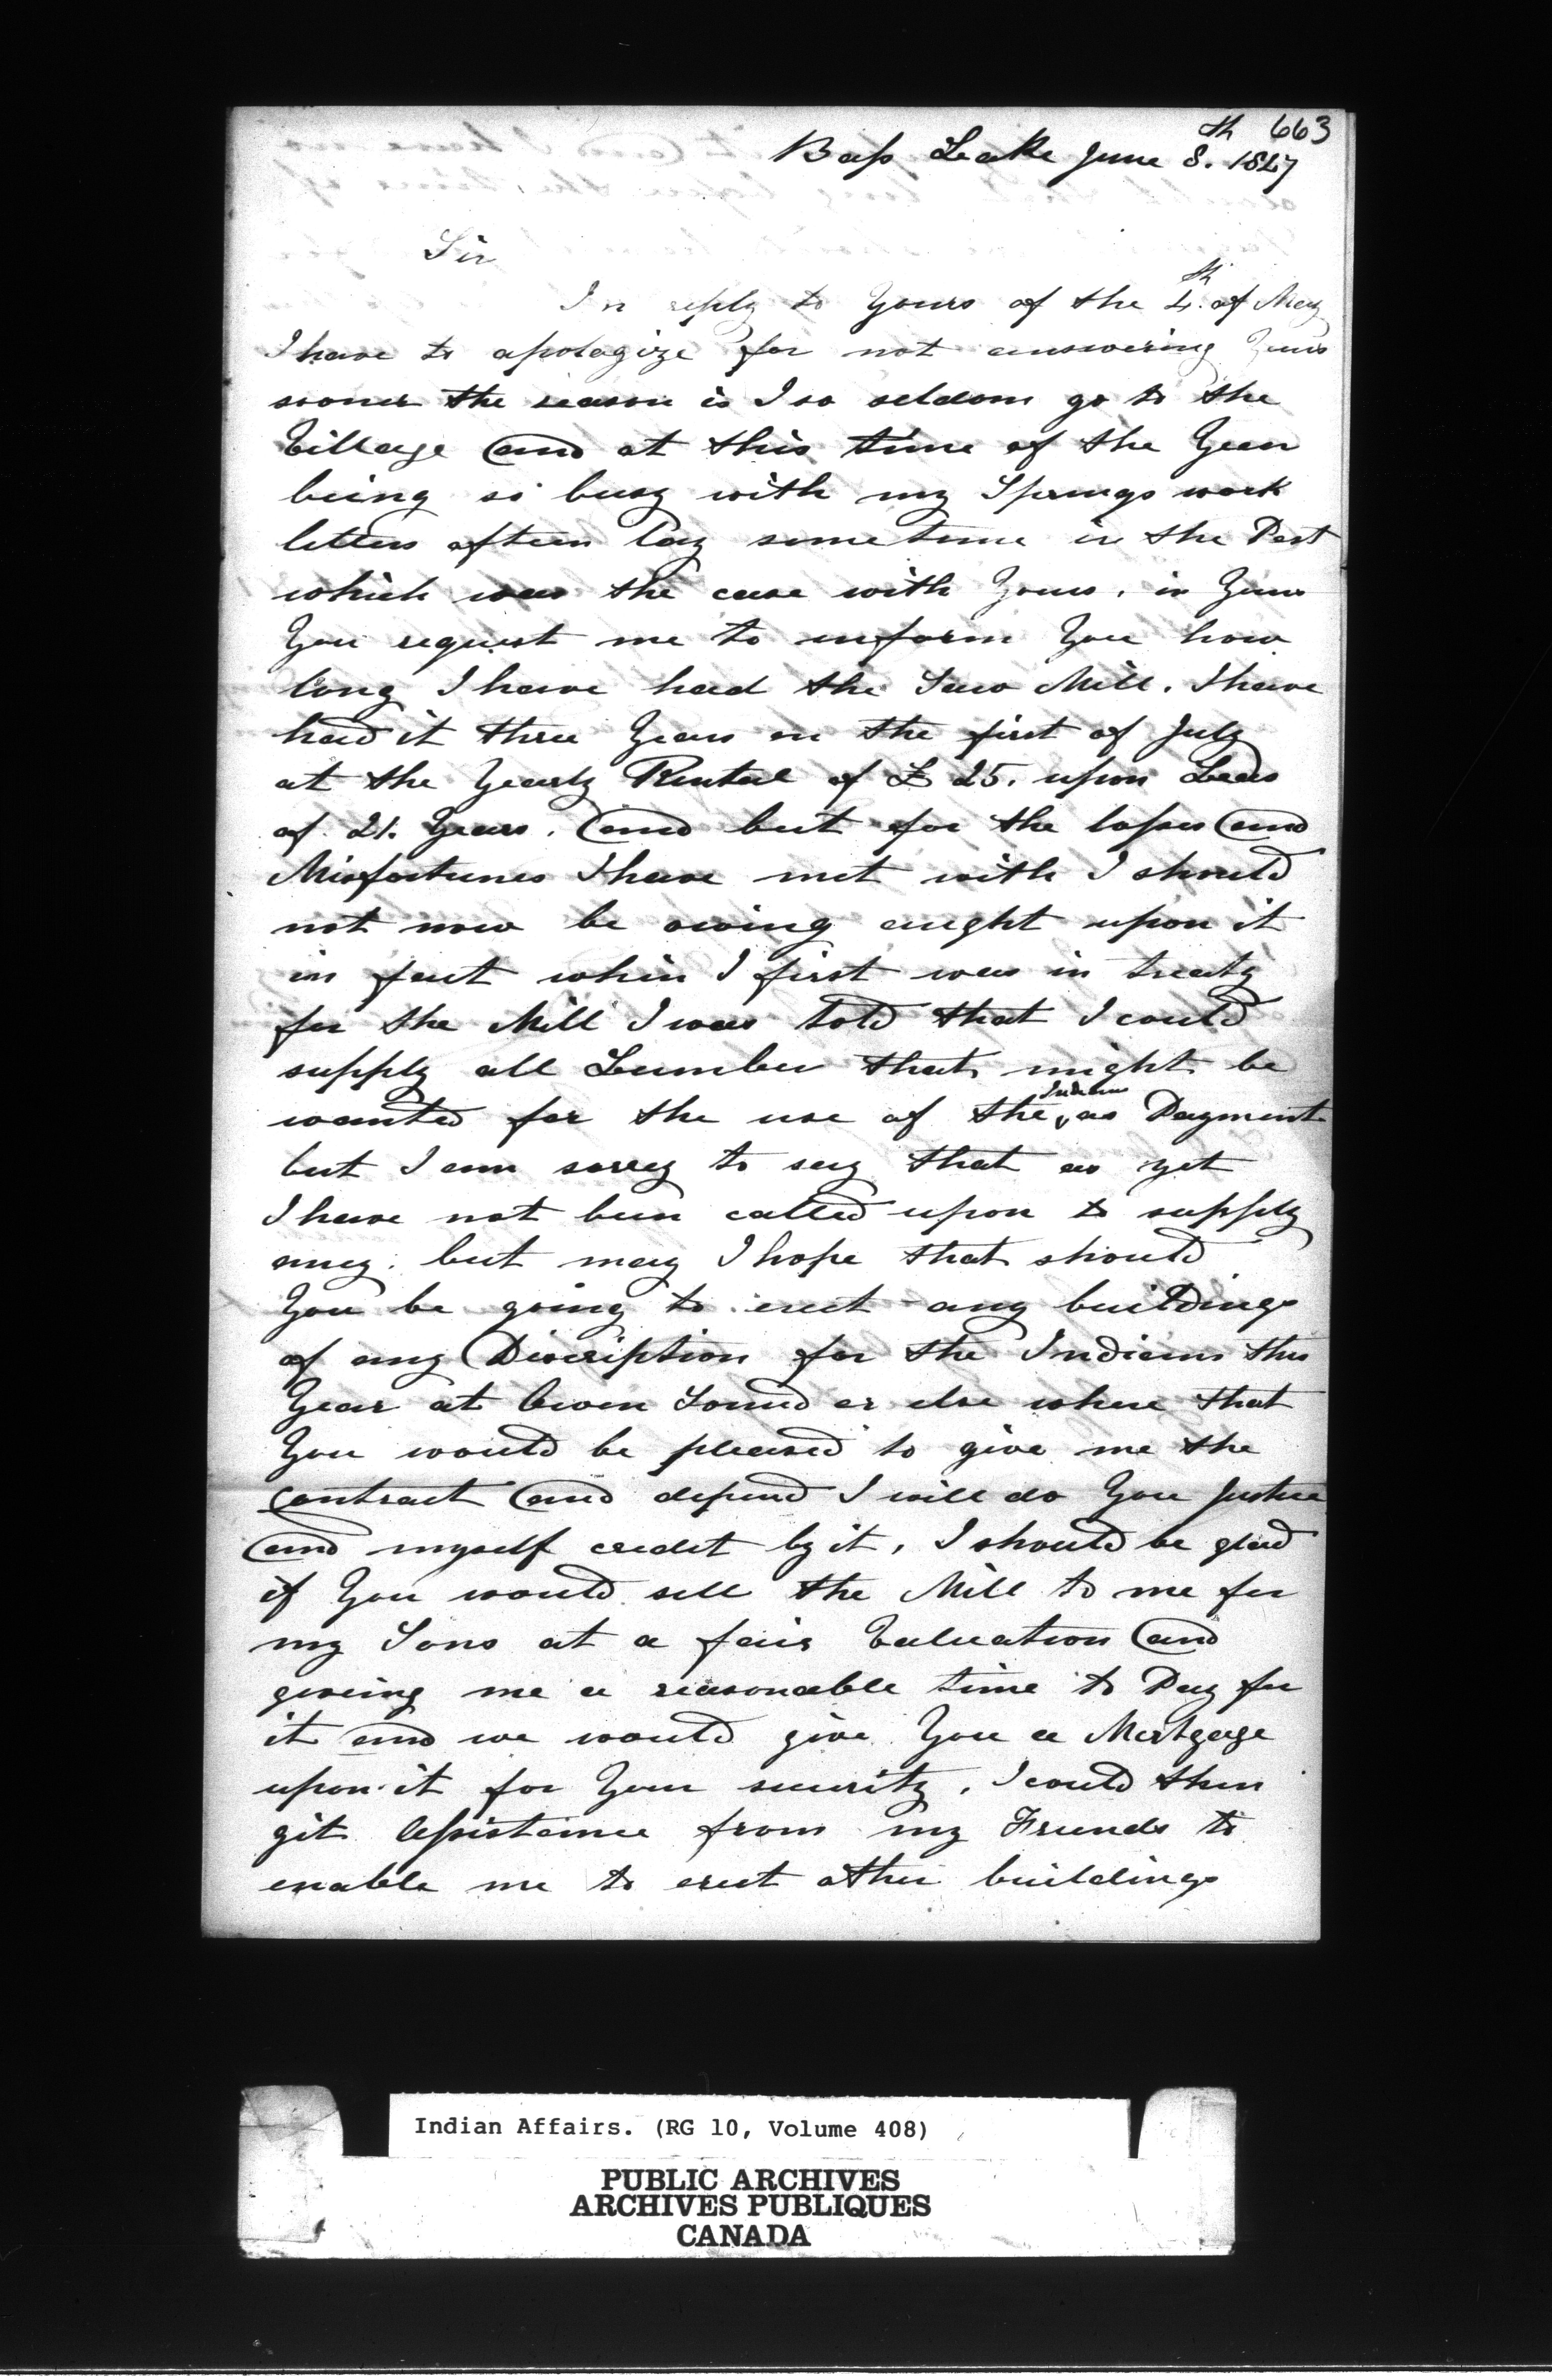 663
Bass Lake June 8.th 1847
Sir
In reply to Yours of the 4.th of May
I have to apologize for not answering Yours
sooner the reason is I so seldom go to the
Village and at this time of the Year
being so busy with my Springs work
letters afteen lay sometime in the Post
which was the case with Yours, in Yours
You request me to inform You how
long I have had the Saw Mill. I have
had it three Years on the first of July
at the Yearly Rental of £ 25. upon Leas
of 21. Years. and but for the losses and
Misfortunes I have met with I should
not now be owing aught upon it
in fact when I first was in treaty
for the Mill I was told that I could
supply all Lumber that might be
wanted for the use of the Indians as Payment
but I am sorrey to say that as yet
I have not been called upon to supply
any. but may I hope that should
You be going to erect any buildings
of any Discription for the Indians this
Year at Owen Sound or else where that
You would be pleased to give me the
contract and depend I will do You Justice
and myself credit by it, I should be glad
if You would sell the Mill to me for
my Sons at a fair Valuation and
giveing me a reasonable time to Pay for
it and we would give You a Mortgage
upon it for Your security, I could then
git Assistance from my Friends to
enable me to erect other buildings
Indian Affairs. (RG 10, Volume 408)
PUBLIC ARCHIVES
ARCHIVES PUBLIQUES
CANADA